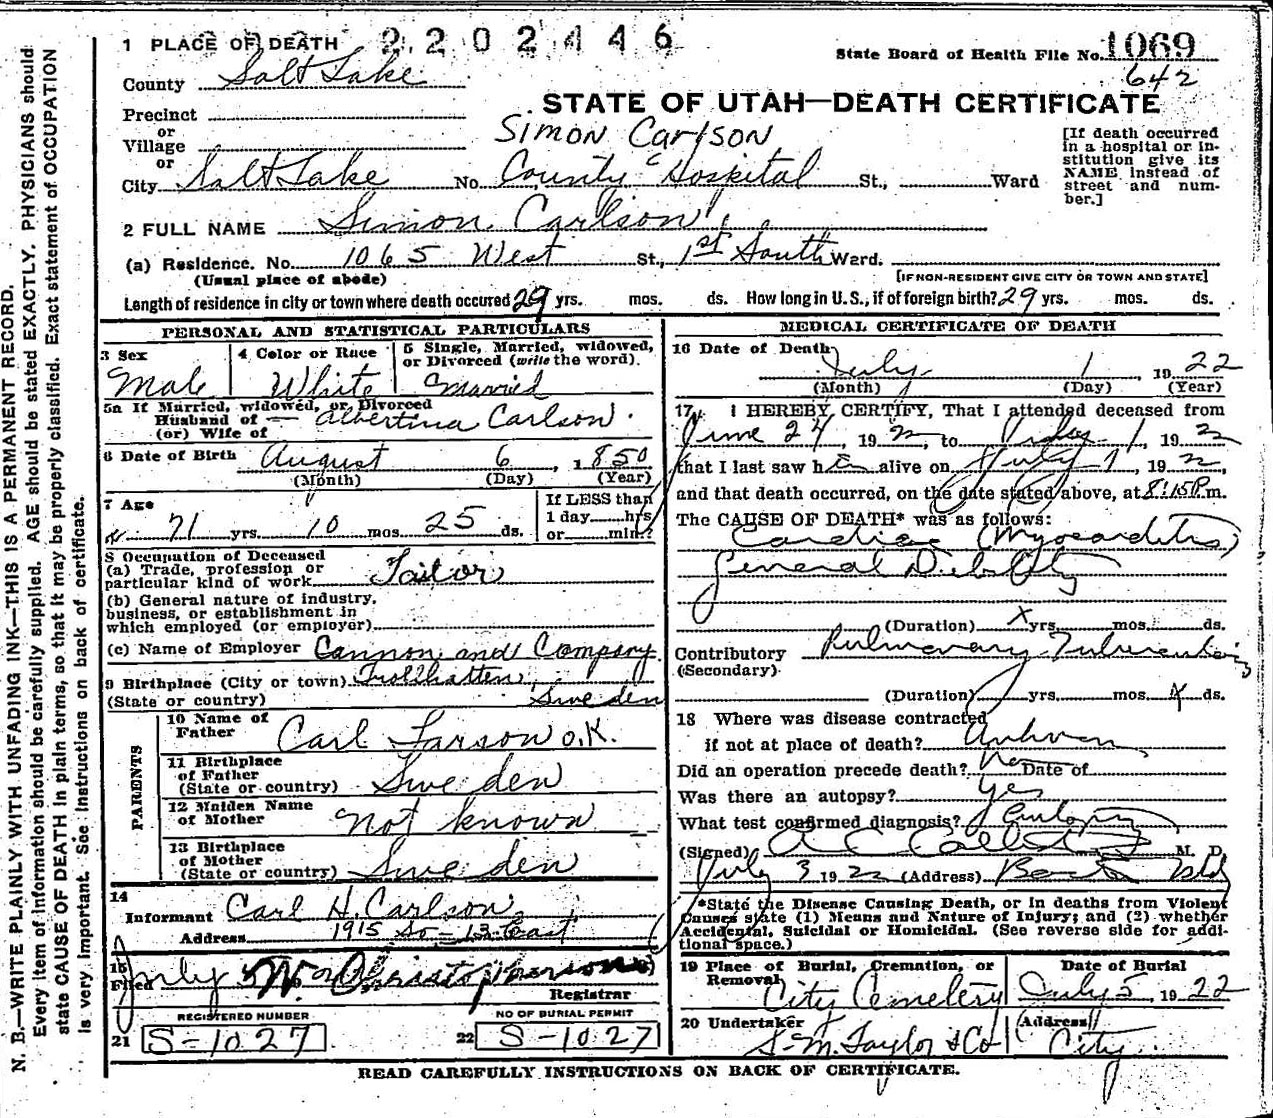 2202446
1 PLACE OF DEATH
State Board of Health File No. 1069
642
County Salt Lake
STATE OF UTAH—DEATH CERTIFICATE
Precinct
or
Village
or
Simon Carlson
[If death occurred in a hospital or institution give its NAME instead of street and number.]
City Salt Lake No. County Hospital St., Ward
2 FULL NAME Simon Carlson
(a) Residence. No. 1065 West St., 1st South Ward.
(Usual place of abode) [IF NON-RESIDENT GIVE CITY OR TOWN AND STATE]
Length of residence in city or town where death occured 29 yrs. mos. ds. How long in U.S., if of foreign birth? 29 yrs. mos. ds.
PERSONAL AND STATISTICAL PARTICULARS
3 Sex
Male
4 Color or Race
White
5 Single, Married, widowed,
or Divorced (write the word).
Married
5a If Married, widowed, or Divorced
Husband of
(or) Wife of
Albertina Carlson.
6 Date of Birth August 6, 1850
(Month) (Day) (Year)
7 Age
71 yrs. 10 mos. 25 ds.
If LESS than
1 day hrs
or min.?
8 Occupation of Deceased
(a) Trade, profession or
particular kind of work Tailor
(b) General nature of industry,
business, or establishment in
which employed (or employer)
(c) Name of Employer Cannon and Company
9 Birthplace (City or town) Trollhatten,
(State or country) Sweden
PARENTS
10 Name of
Father Carl Larson O.K.
11 Birthplace
of Father
(State or country) Sweden
12 Maiden Name
of Mother Not known
13 Birthplace
of Mother
(State or country) Sweden
14
Informant Carl H. Carlson
Address 1915 So - 13 East
15
Filed July 5
Registrar
REGISTERED NUMBER
21 S-1027
NO OF BURIAL PERMIT
22 S-1027
MEDICAL CERTIFICATE OF DEATH
16 Date of Death
July 1 1922
(Month) (Day) (Year)
17 I HEREBY CERTIFY, That I attended deceased from
June 24, 1922, to July 1 1922
that I last saw him alive on July 1, 1922,
and that death occurred, on the date stated above, at 8:15 P.m.
The CAUSE OF DEATH* was as follows:
Cardiac (Myocarditis)
General Debility
(Duration) x yrs. mos. ds.
Contributory Pulmonary Tuberculosis
(Secondary)
(Duration) yrs. mos. ds.
18 Where was disease contracted
if not at place of death? Unknown
Did an operation precede death? No Date of
Was there an autopsy? Yes
What test confirmed diagnosis? Autopsy
(Signed) M. D.
July 3 1922 (Address)
*State the Disease Causing Death, or in deaths from Violent
Causes state (1) Means and Nature of Injury; and (2) whether
Accidental, Suicidal or Homicidal. (See reverse side for addi-
tional space.)
19 Place of Burial, Cremation, or
Removal
City Cemetery
Date of Burial
July 5 1922
20 Undertaker
S. M. Taylor & Co
(Address)
City
READ CAREFULLY INSTRUCTIONS ON BACK OF CERTIFICATE.
N. B.—WRITE PLAINLY WITH UNFADING INK—THIS IS A PERMANENT RECORD.
Every item of information should be carefully supplied. AGE should be stated EXACTLY. PHYSICIANS should
state CAUSE OF DEATH in plain terms, so that it may be properly classified. Exact statement of OCCUPATION
is very important. See instructions on back of certificate.